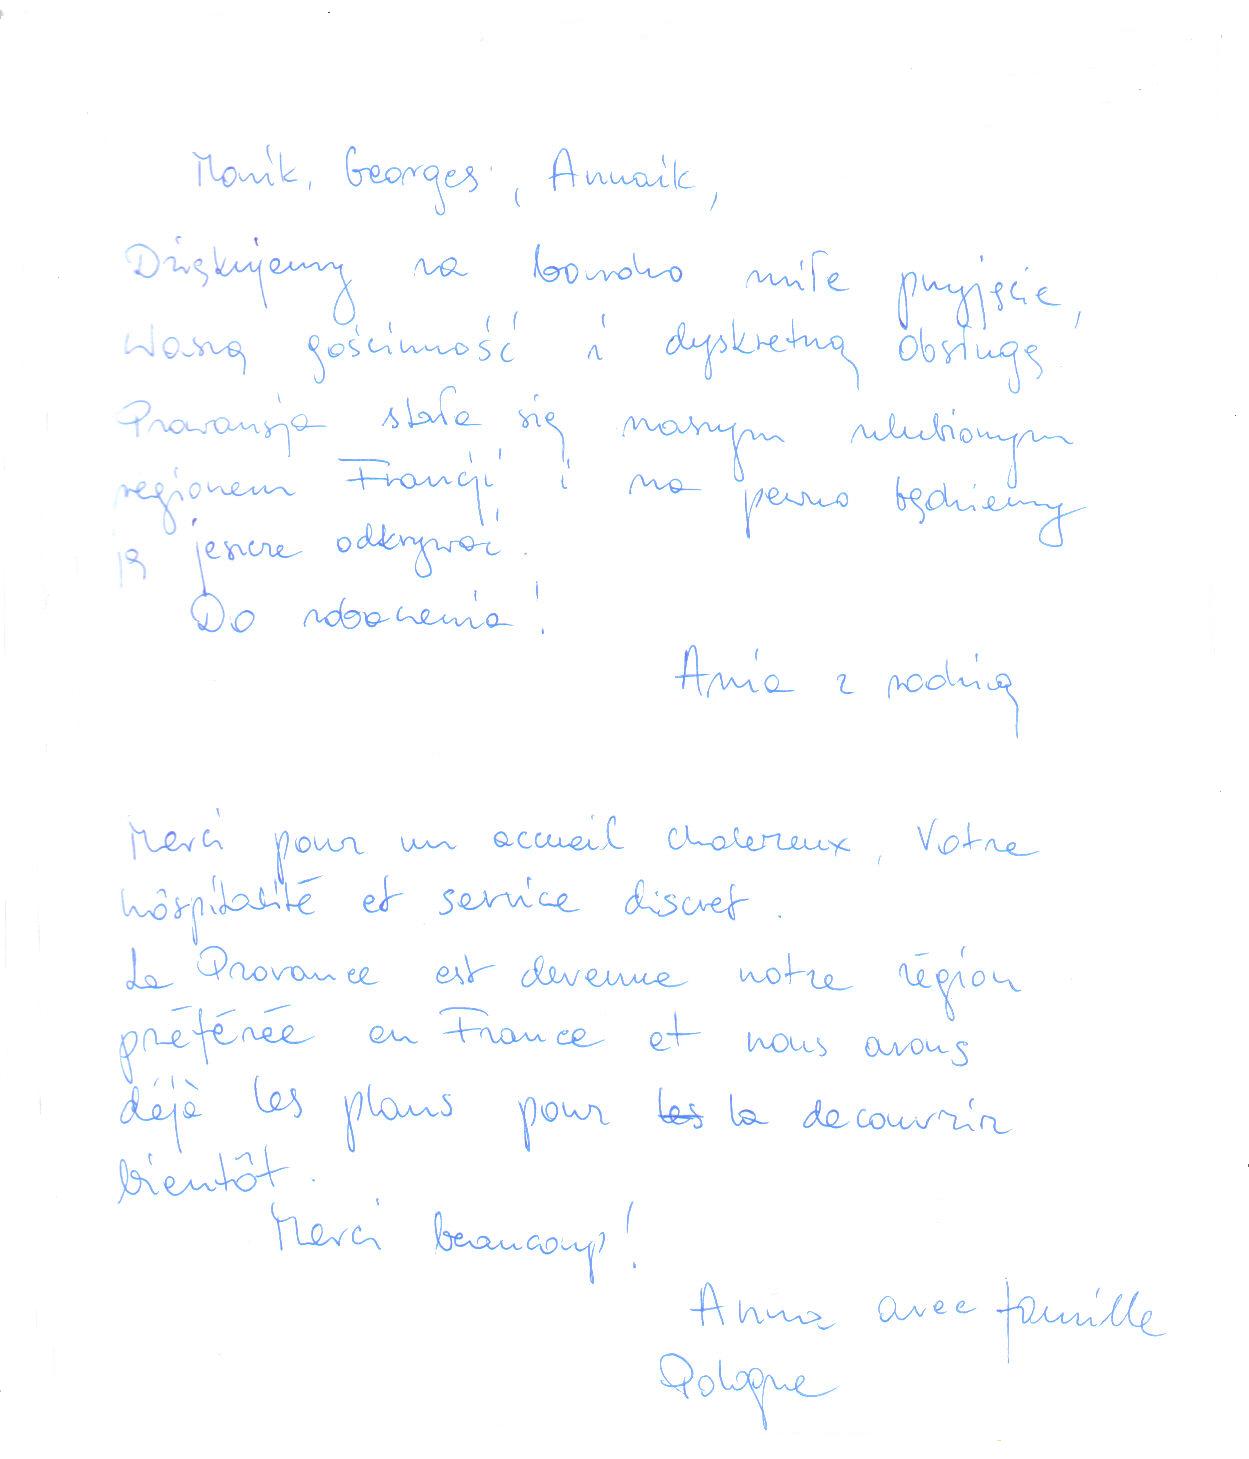 Monik, Georges, Annaik,
Dziękujemy za bardzo miłe przyjęcie,
Waszą gościnność i dyskretną obsługę
Prowansja stała się naszym ulubionym
regionem Francji i na pewno będziemy
ją jeszcze odkrywać.
Do zobaczenia!
Ania z rodziną
Merci pour un accueil chalereux, Votre
hôspitalité et service discret.
La Provance est devenue notre région
préférée en France et nous avons
déjà les plans pour les la decouvrir
bientôt.
Merci beaucoup!
Anna avec famille
Pologne